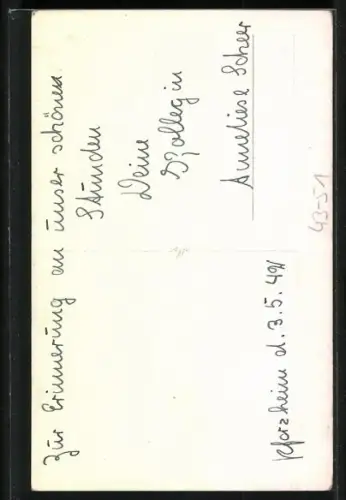 Zur Erinnerung an unser schönen
Stunden
Deine
Kollegin
Anneliese Scheer
Pforzheim d. 3.5.49
43-51